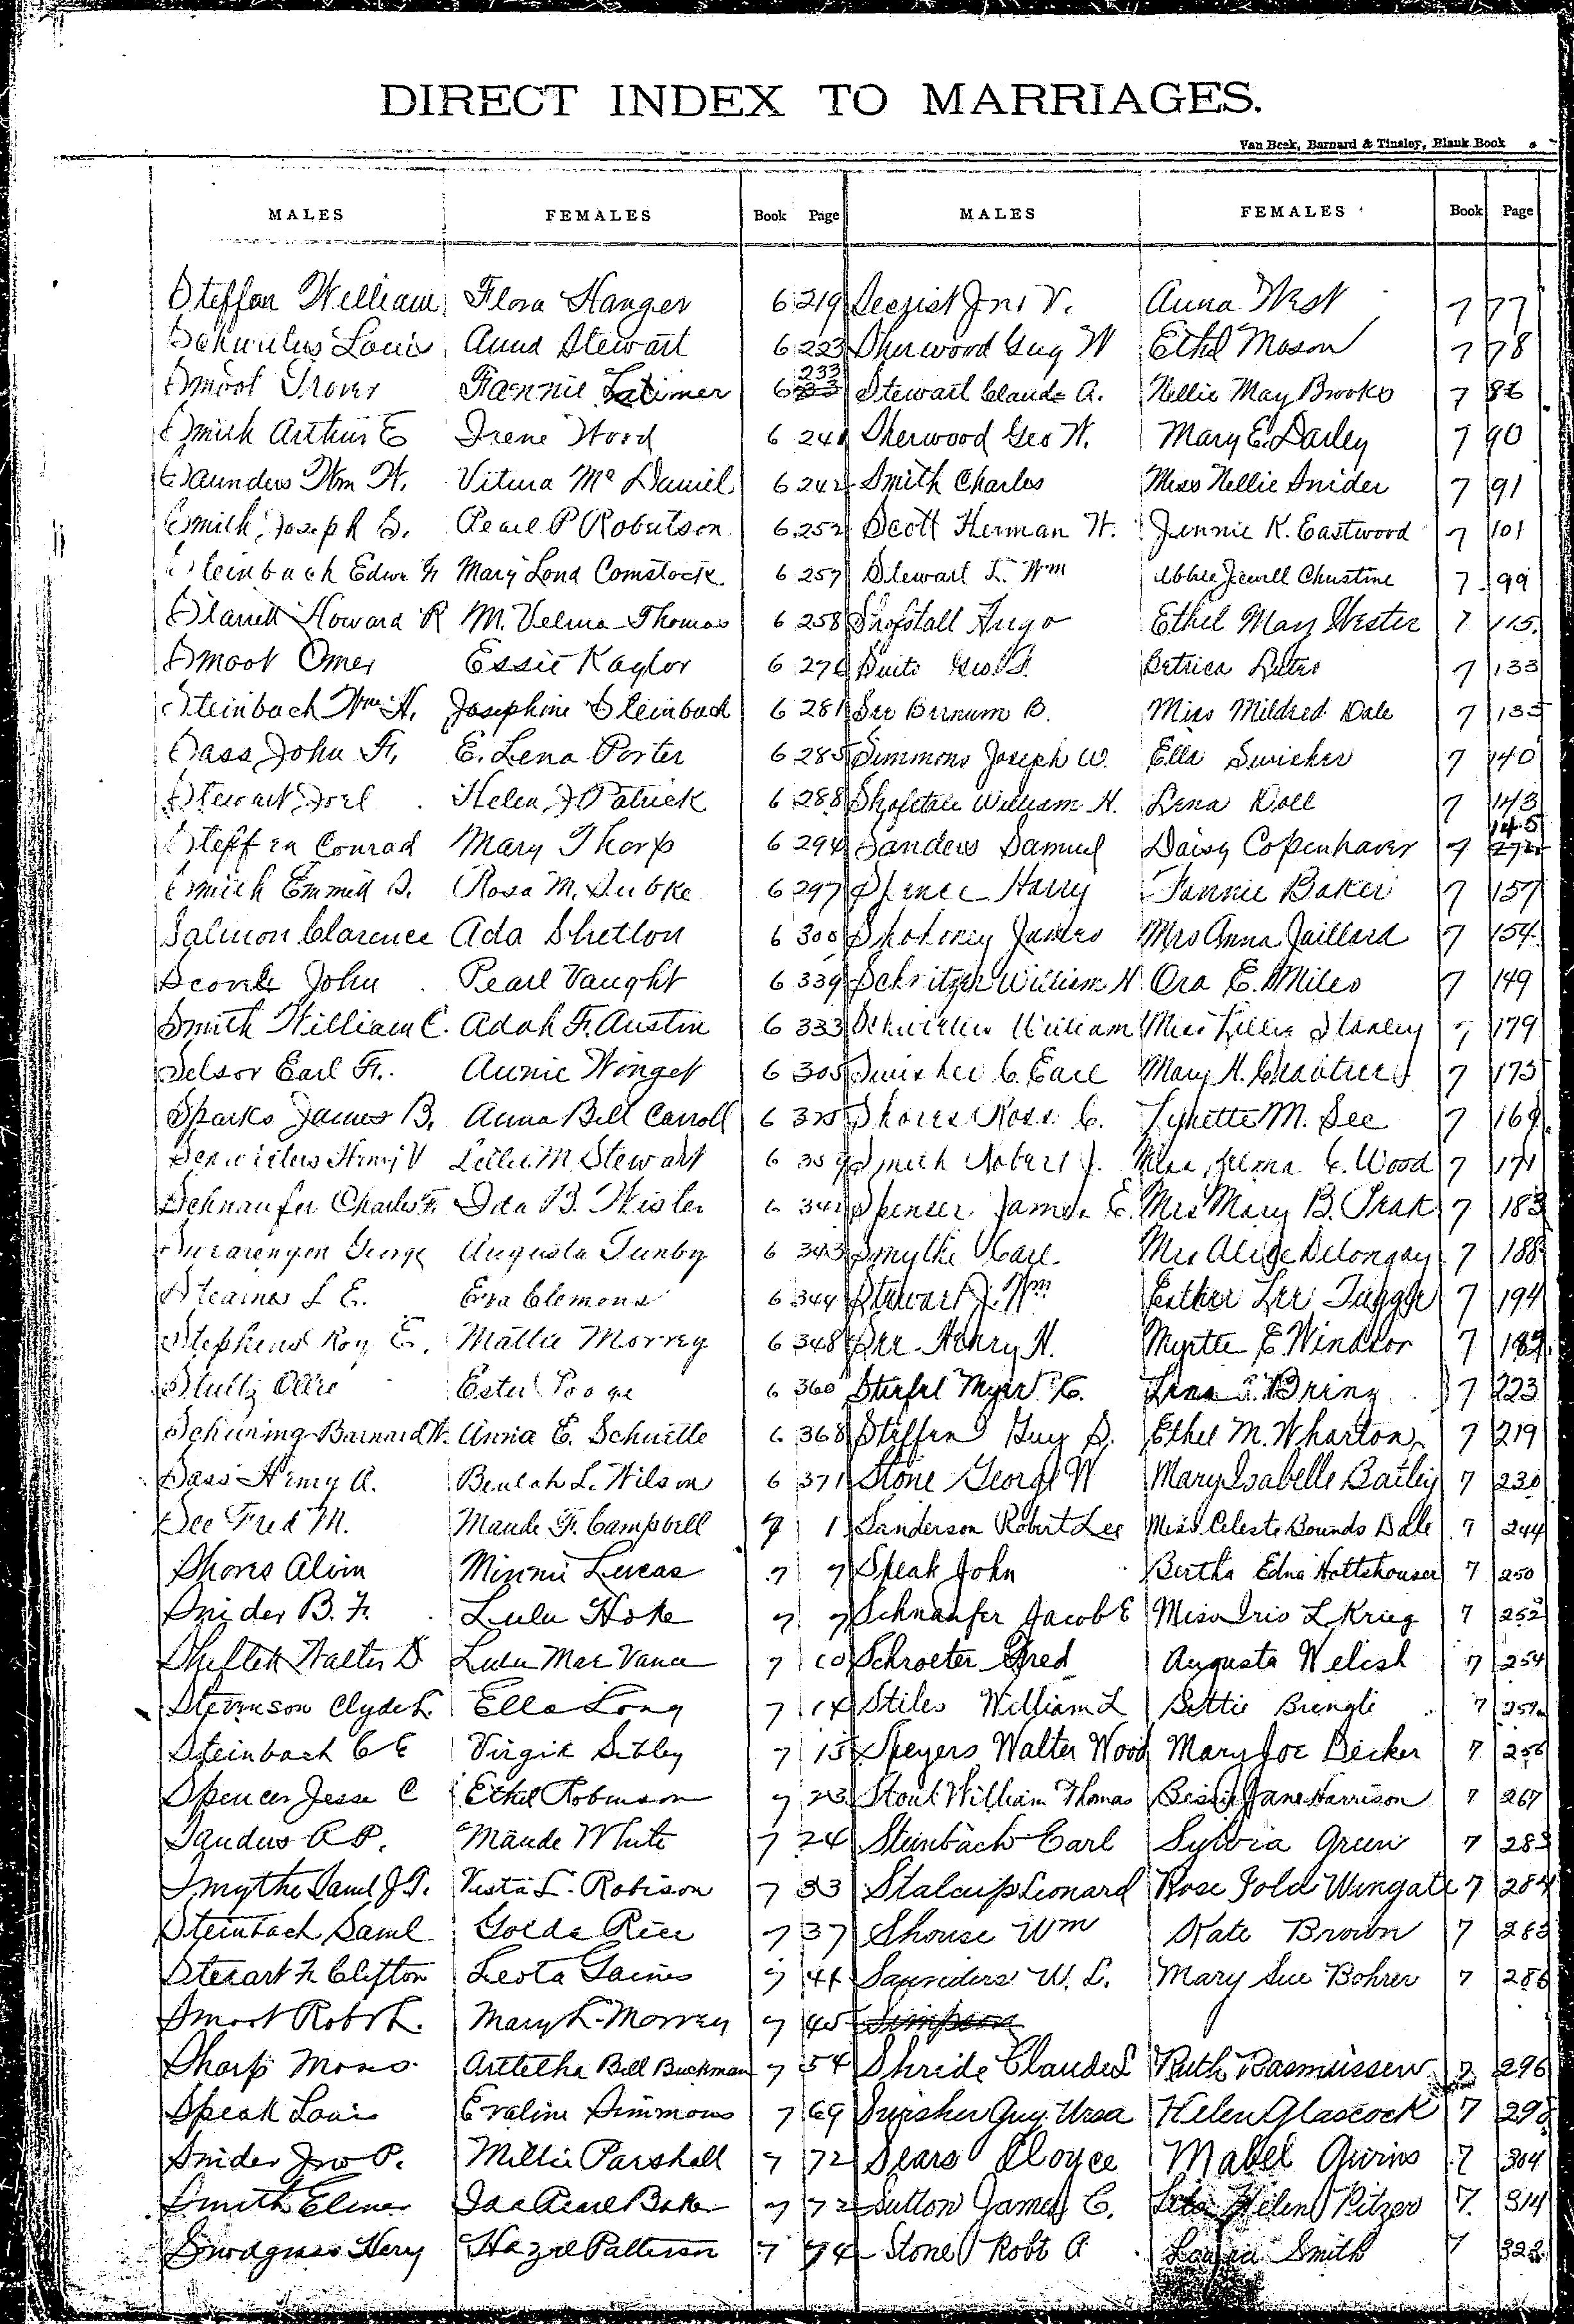 DIRECT INDEX TO MARRIAGES.
Van Beek, Barnard & Tinsley, Blank Book
MALES FEMALES Book Page MALES FEMALES Book Page
Steffen William Flora Hanger 6 219
Louis Anna Stewart 6 223
Smoot Grover Fannie Latimer 6 233
Smith Arthur E Irene Wood 6 241
Saunders Wm H. Vitura Mc Daniel 6 242
Smith, Joseph S. Pearl P Robertson 6 252
Steinbach Edw. H Mary Lona Comstock 6 257
Starrett Howard R M. Velma Thomas 6 258
Smoot Omer Essie Kaylor 6 276
Steinbach Wm H. Josephine Steinbach 6 281
Sass John H. E. Lena Porter 6 285
Stewart, Joel Helen J Patrick 6 288
Steffen Conrad Mary Thorp 6 294
Smith Emmett D. Rosa M. Subke 6 297
Salmon Clarence Ada Shelton 6 300
John Pearl Vaught 6 339
Smith William C. Adah F. Austin 6 333
Selsor Earl F. Annie Winget 6 305
Sparks James B. Anna Bell Carroll 6 325
Schwieters Henry V Lillie M. Stewart 6
Schnaufer Charles F. Ida B. Hisler 6 341
George Augusta 6 343
Stearnes L E. Eva Clemens 6 344
Stephens Roy E. Mattie Morrey 6 348
Stultz Ollie Ester 6 360
Schuring Barnard H. Annie E. Schuette 6 368
Sass Henry A. Beulah L. Wilson 6 371
See Fred M. Maude F. Campbell 7 1
Shores Alvin Minnie Lucas 7 7
Snider B. F. Lulu Hoke 7 7
Shiflett Walter D Lulu Mae Vance 7 10
Stevenson Clyde L. Ella Long 7 14
Steinbach C E Virgie Sibley 7 15
Spencer Jesse C Ethel Robinson 7 23
Sandus A P. Maude White 7 24
Smythe Saml J. T. Vesta L. Robison 7 33
Steinbach Saml Golda Rice 7 37
Stewart F. Clifton Leota Gaines 7 41
Smoot Robt L. Mary L. Morrey 7 45
Sharp Mono Arttetha Bell Buckman 7 54
Speak Louis Evaline Simmons 7 69
Snider Jno P. Millie Parshall 7 72
Smith Elmer Ida Pearl Baker 7 72
Snodgrass Hery Hazel Patterson 7 74
Jno V. Anna West 7 77
Sherwood Guy W Ethel Mason 7 78
Stewart Claude A. Nellie May Brooks 7 86
Sherwood Geo W. Mary E. Dailey 7 90
Smith Charles Miss Nellie Snider 7 91
Scott Herman W. Jennie K. Eastwood 7 101
Stewart L. Wm Abbie Jewell Christine 7 99
Shofstall Hugo Ethel May Hester 7 115
Suits Geo. F. Betrica 7 133
See Barnum B. Miss Mildred Dale 7 135
Simmons Joseph W. Ella Swisher 7 140
Shofstall William H. Lena Doll 7 143
Sanders Samuel Daisy Copenhaver 7 145
Spence Harry Fannie Baker 7 157
Shohoney James Mrs Anna Jaillard 7 154
Schritzer William H Ora E. Miles 7 149
Schwieters William Miss Lillie Stanley 7 179
Swisher C. Earl Mary H. 7 175
Shores Ross C. Lynette M. See 7 169
Smith Robert J. Miss Selma E. Wood 7 171
Spencer James E. Mrs Mary B. Peak 7 183
Smythe Carl Mrs Alice Delongay 7 188
Stewart J. Wm Esther Lee Tuggle 7 194
See Henry H. Myrtle E Windsor 7 189
Myer C. Lena 7 223
Steffen Guy S. Ethel M. Wharton 7 219
Stone George W Mary Isabelle Bailey 7 230
Sanderson Robert Lee Miss Celeste Bounds Dale 7 244
Speak John Bertha Edna Holtshouser 7 250
Schnaufer Jacob E Miss Iris L Krieg 7 252
Schroeter Fred Augusta Welish 7 254
Stiles William L Bettie Brengle 7 259
Speyers Walter Wood Mary Joe Decker 7 256
Stout William Thomas Bessie Jane Harrison 7 267
Steinbach Carl Sylvia Green 7 283
Stalcup Leonard Rose Gold Wingate 7 284
Shouse Wm Kate Brown 7 283
Saunders W. L. Mary Sue Bohrer 7 286
Simpson
Shride Claude L Ruth Rasmussen 7 296
Swisher Guy Ursa Helen Glascock 7 298
Sears Cloyce Mabel Givins 7 304
Sutton James C. Helen Pitzer 7 314
Stone Robt A Smith 7 322